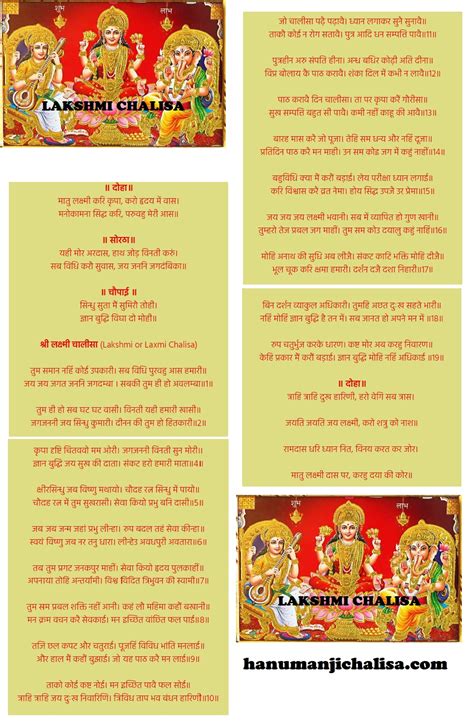 शुभ लाभ
LAKSHMI CHALISA
॥ दोहा॥
मातु लक्ष्मी करि कृपा, करो हृदय में वास।
मनोकामना सिद्ध करि, परुवहु मेरी आस॥
॥ सोरठा॥
यही मोर अरदास, हाथ जोड़ विनती करुं।
सब विधि करौ सुवास, जय जननि जगदंबिका॥
॥ चौपाई ॥
सिन्धु सुता मैं सुमिरौ तोही।
ज्ञान बुद्धि विघा दो मोही॥
श्री लक्ष्मी चालीसा (Lakshmi or Laxmi Chalisa)
तुम समान नहिं कोई उपकारी। सब विधि पुरवहु आस हमारी॥
जय जय जगत जननि जगदम्बा । सबकी तुम ही हो अवलम्बा॥1॥
तुम ही हो सब घट घट वासी। विनती यही हमारी खासी॥
जगजननी जय सिन्धु कुमारी। दीनन की तुम हो हितकारी॥2॥
कृपा दृष्टि चितववो मम ओरी। जगजननी विनती सुन मोरी॥
ज्ञान बुद्धि जय सुख की दाता। संकट हरो हमारी माता॥4॥
क्षीरसिन्धु जब विष्णु मथायो। चौदह रत्न सिन्धु में पायो॥
चौदह रत्न में तुम सुखरासी। सेवा कियो प्रभु बनि दासी॥5॥
जब जब जन्म जहां प्रभु लीन्हा। रुप बदल तहं सेवा कीन्हा॥
स्वयं विष्णु जब नर तनु धारा। लीन्हेउ अवधपुरी अवतारा॥6॥
तब तुम प्रगट जनकपुर माहीं। सेवा कियो हृदय पुलकाहीं॥
अपनाया तोहि अन्तर्यामी। विश्व विदित त्रिभुवन की स्वामी॥7॥
तुम सम प्रबल शक्ति नहीं आनी। कहं लौ महिमा कहौं बखानी॥
मन क्रम वचन करै सेवकाई। मन इच्छित वांछित फल पाई॥8॥
तजि छल कपट और चतुराई। पूजहिं विविध भांति मनलाई॥
और हाल मैं कहौं बुझाई। जो यह पाठ करै मन लाई॥9॥
ताको कोई कष्ट नोई। मन इच्छित पावै फल सोई॥
त्राहि त्राहि जय दुःख निवारिणि। त्रिविध ताप भव बंधन हारिणी॥10॥
जो चालीसा पढ़ै पढ़ावै। ध्यान लगाकर सुनै सुनावै॥
ताकौ कोई न रोग सतावै। पुत्र आदि धन सम्पत्ति पावै॥11॥
पुत्रहीन अरु संपति हीना। अन्ध बधिर कोढ़ी अति दीना॥
विप्र बोलाय कै पाठ करावै। शंका दिल में कभी न लावै॥12॥
पाठ करावै दिन चालीसा। ता पर कृपा करैं गौरीसा॥
सुख सम्पत्ति बहुत सी पावै। कमी नहीं काहू की आवै॥13॥
बारह मास करै जो पूजा। तेहि सम धन्य और नहिं दूजा॥
प्रतिदिन पाठ करै मन माही। उन सम कोइ जग में कहुं नाहीं॥14॥
बहुविधि क्या मैं करौं बड़ाई। लेय परीक्षा ध्यान लगाई॥
करि विश्वास करै व्रत नेमा। होय सिद्ध उपजै उर प्रेमा॥15॥
जय जय जय लक्ष्मी भवानी। सब में व्यापित हो गुण खानी॥
तुम्हरो तेज प्रबल जग माहीं। तुम सम कोउ दयालु कहुं नाहिं॥16॥
मोहि अनाथ की सुधि अब लीजै। संकट काटि भक्ति मोहि दीजै॥
भूल चूक करि क्षमा हमारी। दर्शन दजै दशा निहारी॥17॥
बिन दर्शन व्याकुल अधिकारी। तुमहि अछत दुःख सहते भारी॥
नहिं मोहिं ज्ञान बुद्धि है तन में। सब जानत हो अपने मन में॥18॥
रुप चतुर्भुज करके धारण। कष्ट मोर अब करहु निवारण॥
केहि प्रकार मैं करौं बड़ाई। ज्ञान बुद्धि मोहि नहिं अधिकाई॥19॥
॥ दोहा॥
त्राहि त्राहि दुख हारिणी, हरो वेगि सब त्रास।
जयति जयति जय लक्ष्मी, करो शत्रु को नाश॥
रामदास धरि ध्यान नित, विनय करत कर जोर।
मातु लक्ष्मी दास पर, करहु दया की कोर॥
LAKSHMI CHALISA
hanumanjichalisa.com